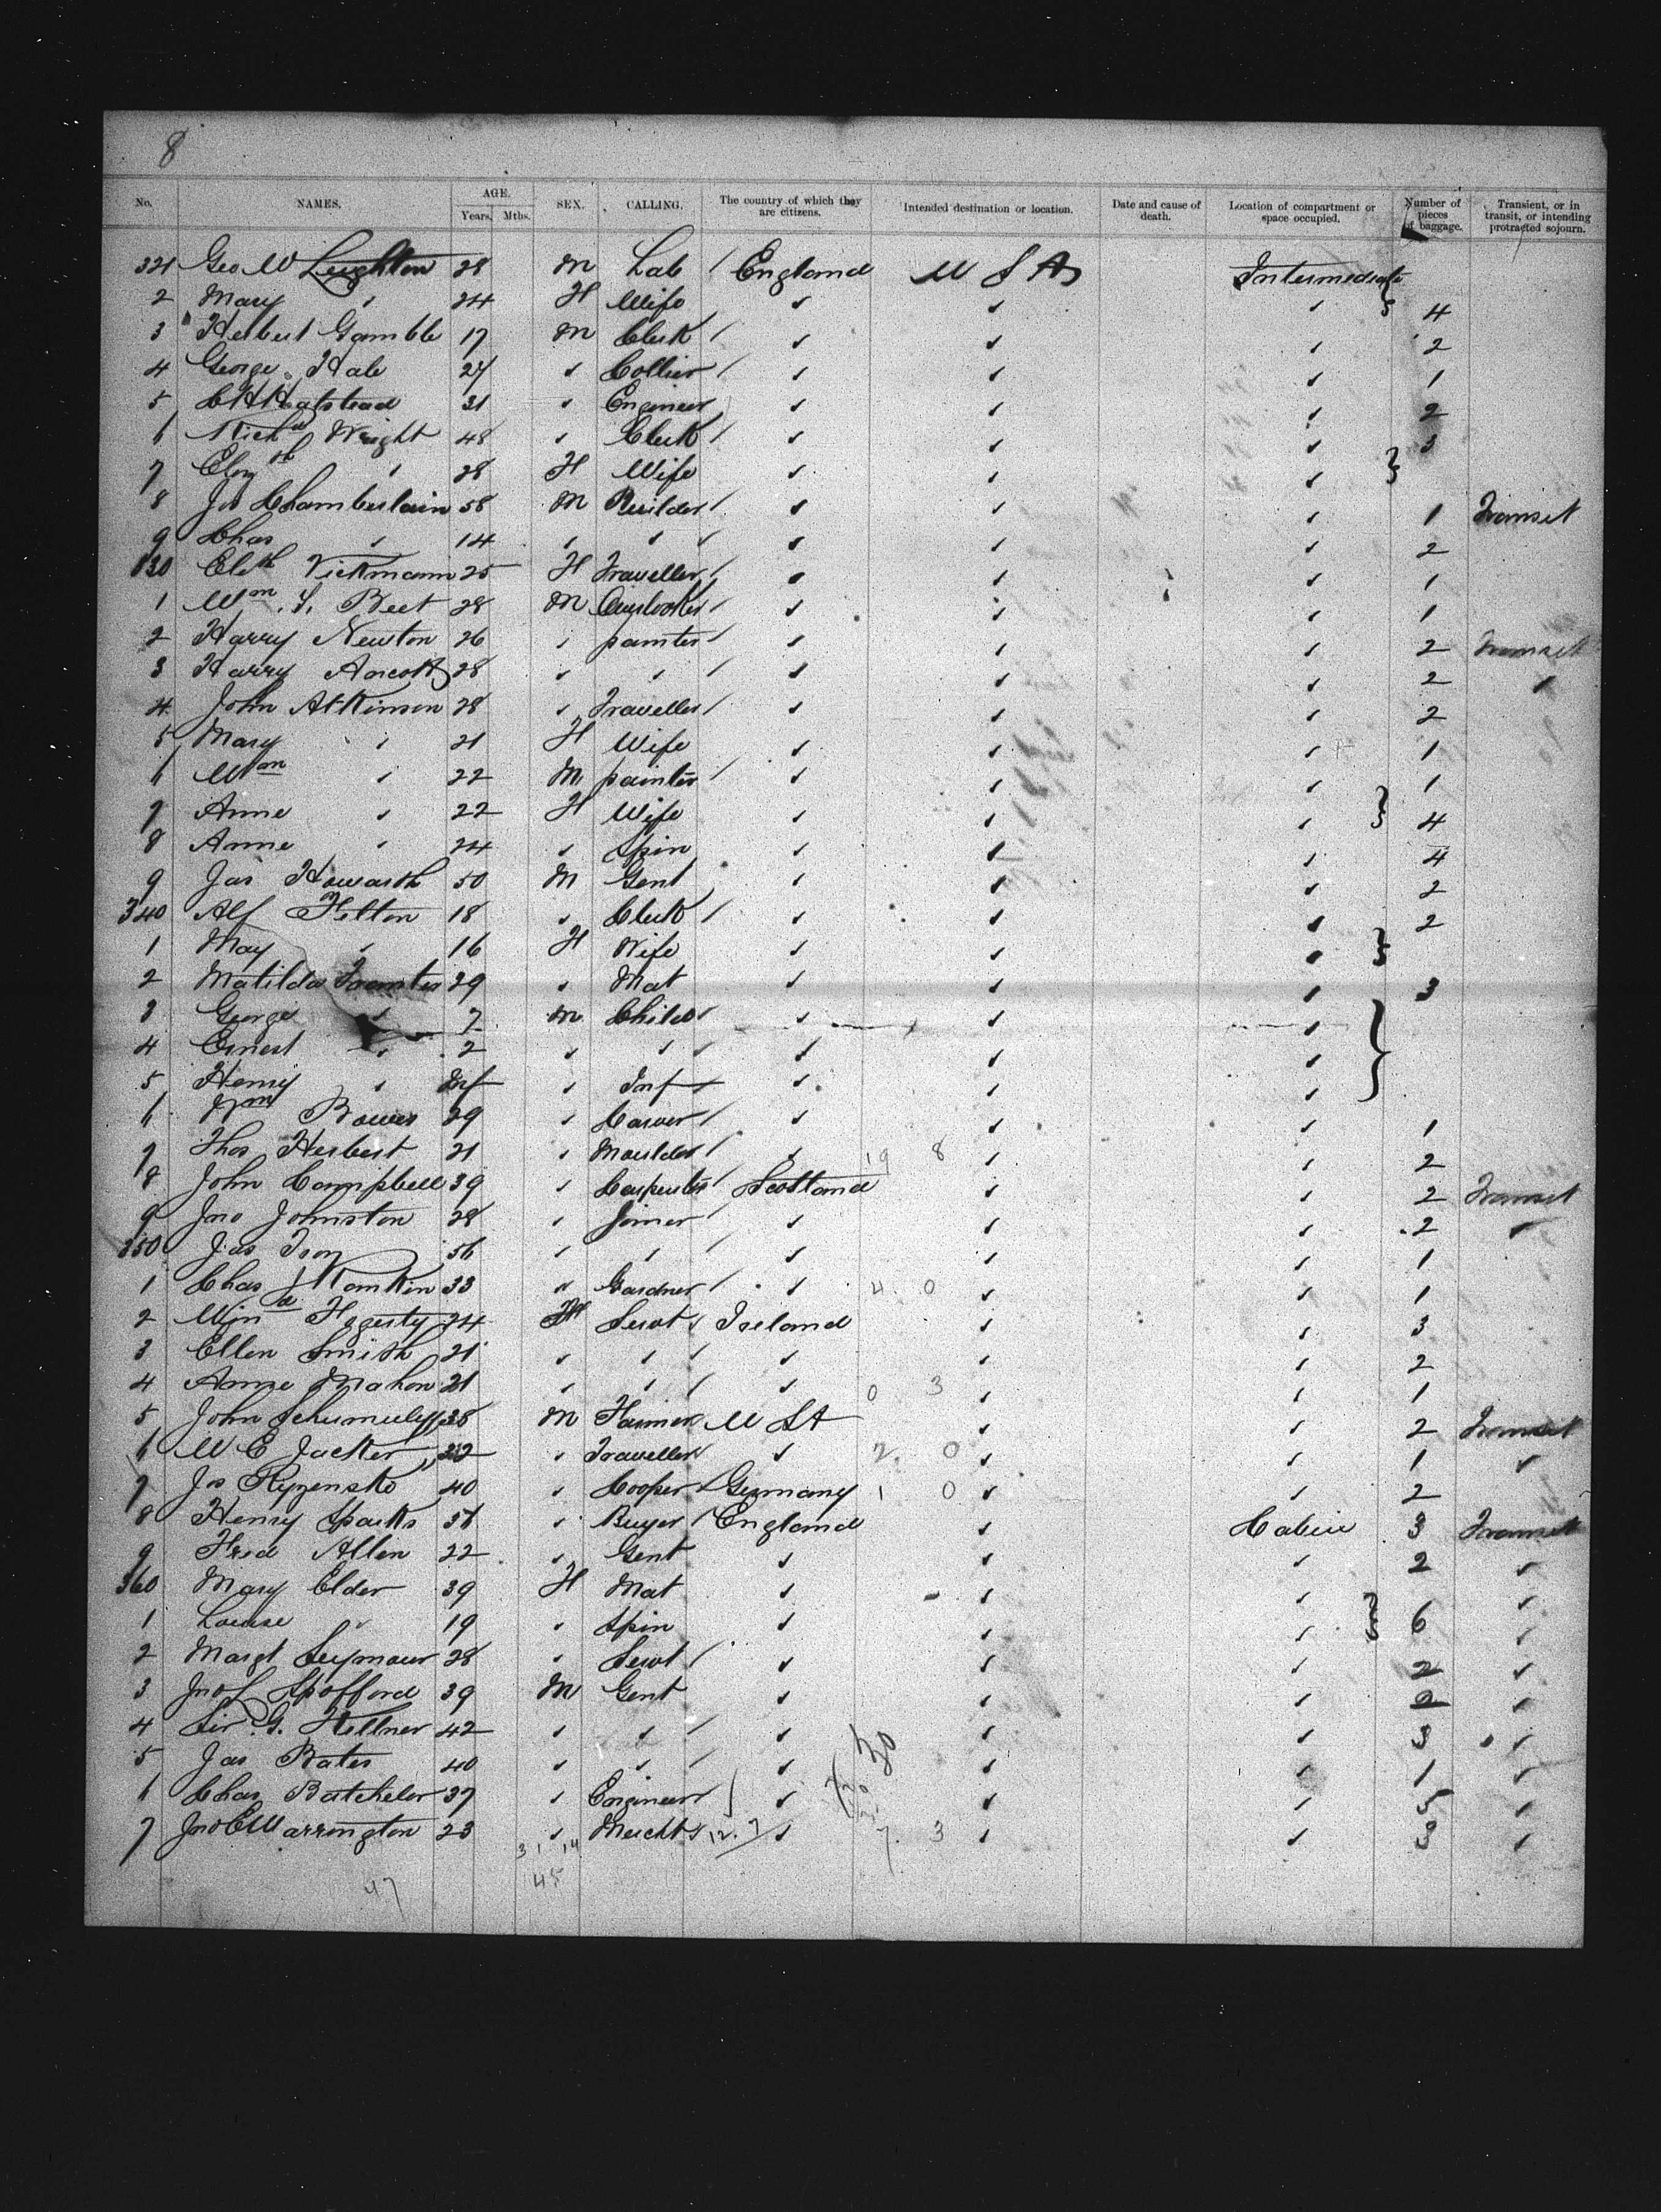 8
No. NAMES. AGE. Years. Mths. SEX. CALLING. The country of which they are citizens. Intended destination or location. Date and cause of death. Location of compartment or space occupied. Number of pieces of baggage. Transient, or in transit, or intending protracted sojourn.
321 Geo W Leighton 28 M Lab / England U S A Intermediate
2 Mary " 24 F Wife " " " 4
3 Herbert Gamble 17 M Clerk / " " " 2
4 George Hale 27 " Collier / " " " 1
5 31 " Engineer " " " 2
6 Richd Wright 48 " Clerk / " " " 3
7 Elizth " 28 F Wife " " "
8 Jos Chamberlain 58 M Builder / " " " 1 Transit
9 Chas " 14 " " " " " 2
330 Elizth Vickmann 25 F Traveller / " " " 1
1 Wm Beet 28 M Overlooker / " " " 1
2 Harry Newton 26 " painter / " " " 2 Transit
3 Harry 28 " " / " " " 2 "
4 John Atkinson 28 " Traveller / " " " 2
5 Mary " 21 F Wife " " " 1
6 Wm " 22 M painter / " " " 1
7 Anne " 22 F Wife " " " 4
8 Anne " 24 " Spin " " " 4
9 Jas Howarth 50 M Gent " " " 2
340 Alf Felton 18 " Clerk / " " " 2
1 May " 16 F Wife " " "
2 Matilda 29 " Mat " " " 3
3 George " 7 M Child " " "
4 Ernest " 2 " " " " "
5 Henry " Inf " Inf " " "
6 Wm Bowes 29 " Carver / " " " 1
7 Thos Herbert 21 " Moulder / " 19 8 " " 2
8 John Campbell 39 " Carpenter / Scotland " " 2 Transit
9 Jno Johnston 28 " Joiner / " " " 2 "
350 Jas 56 " " / " " " 1
1 Chas Rankin 33 " Gardner / " 4 0 " " 1
2 Winnd Hegerty 24 F Servt Ireland " " 3
3 Ellen Smith 21 " " " " " 2
4 Anne Mahon 21 " " " 0 3 " " 1
5 John 38 M Farmer U S A " " 2 Transit
6 W E Jacker 22 " Traveller " 2 0 " " 1 "
7 Jos 40 " Cooper Germany 1 0 " " 2
8 Henry Sparks 51 " Buyer / England " Cabin 3 Transit
9 Fred Allen 22 " Gent " " " 2 "
360 Mary Elder 39 F Mat " " " "
1 Louise " 19 " Spin " " " 6 "
2 Margt Seymour 28 " Servt / " " " 2 "
3 Jno L Spofford 39 M Gent " " " 2 "
4 Sir G. Kellner 42 " " / " " " 3 "
5 Jas Bates 40 " " / " 30 " " 1 "
6 Chas Batchelor 37 " Engineer / " " " 5 "
7 Jno E Warrington 23 " Mercht 12.7 " 7 3 " " 3 "
31 14
47 45